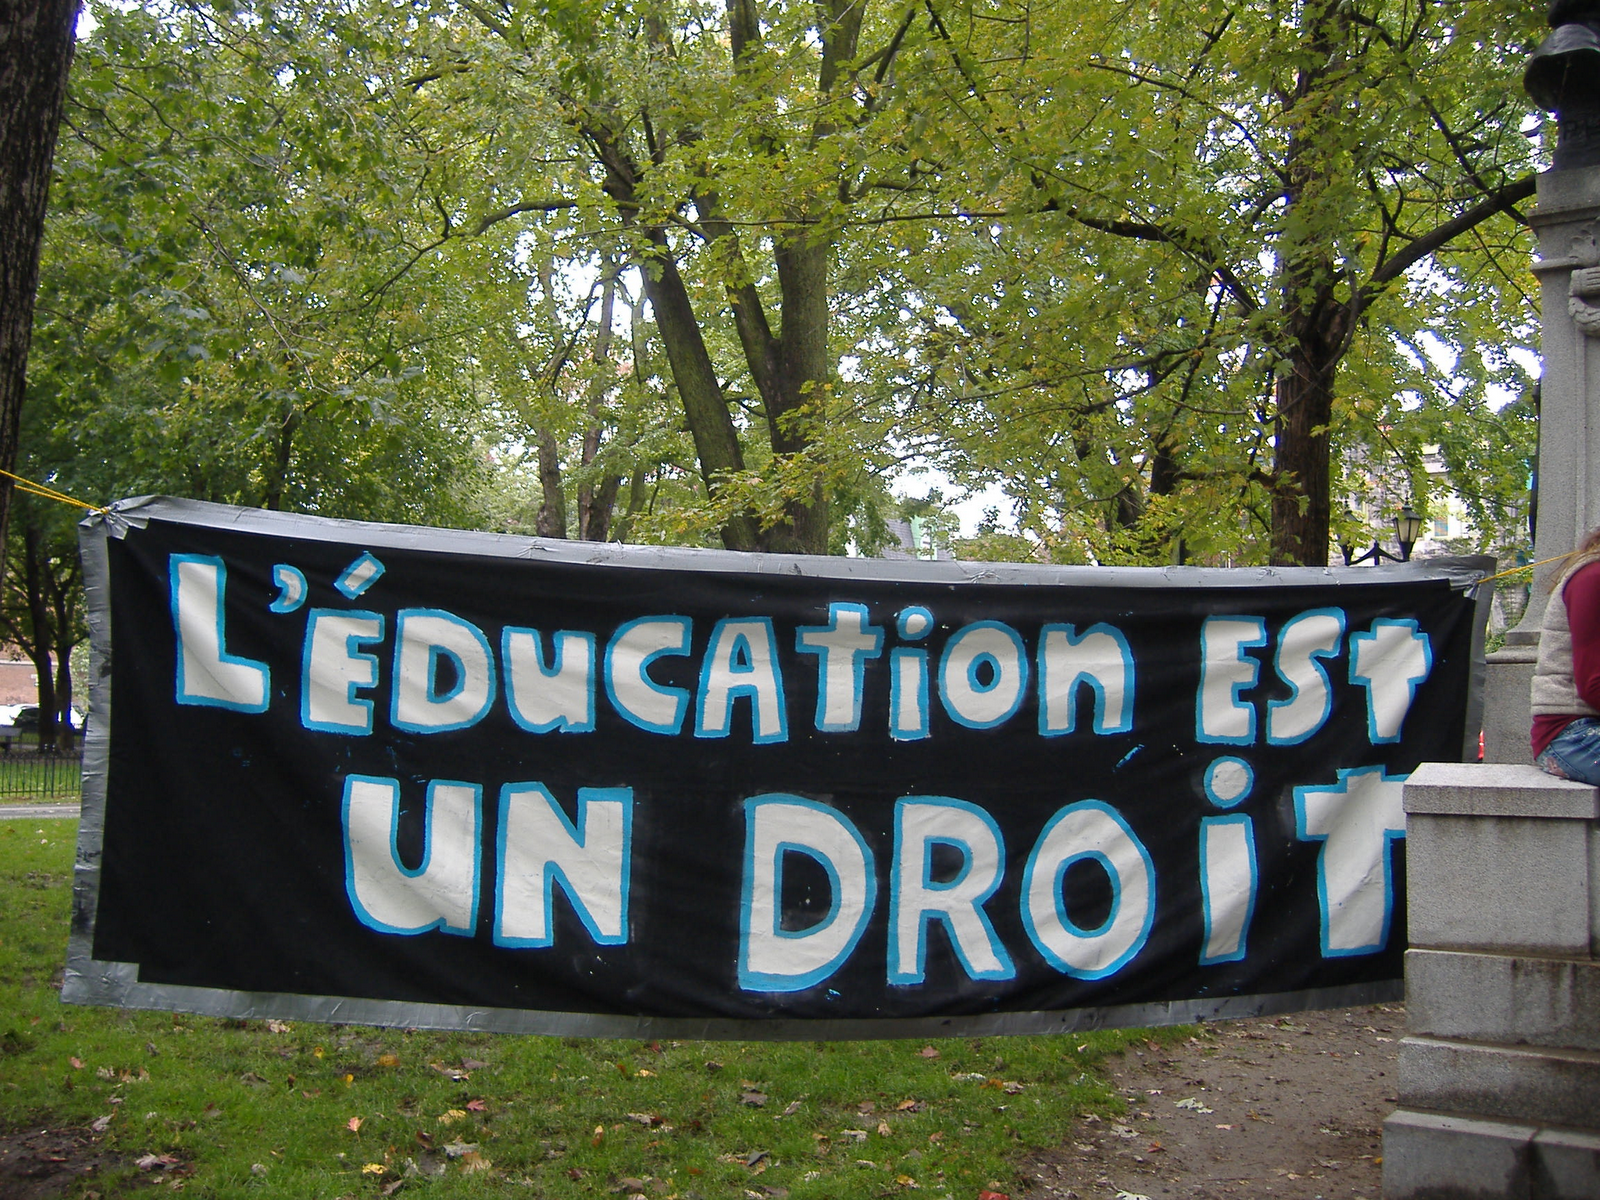 L'ÉDuCAtion ESt
UN DROiT